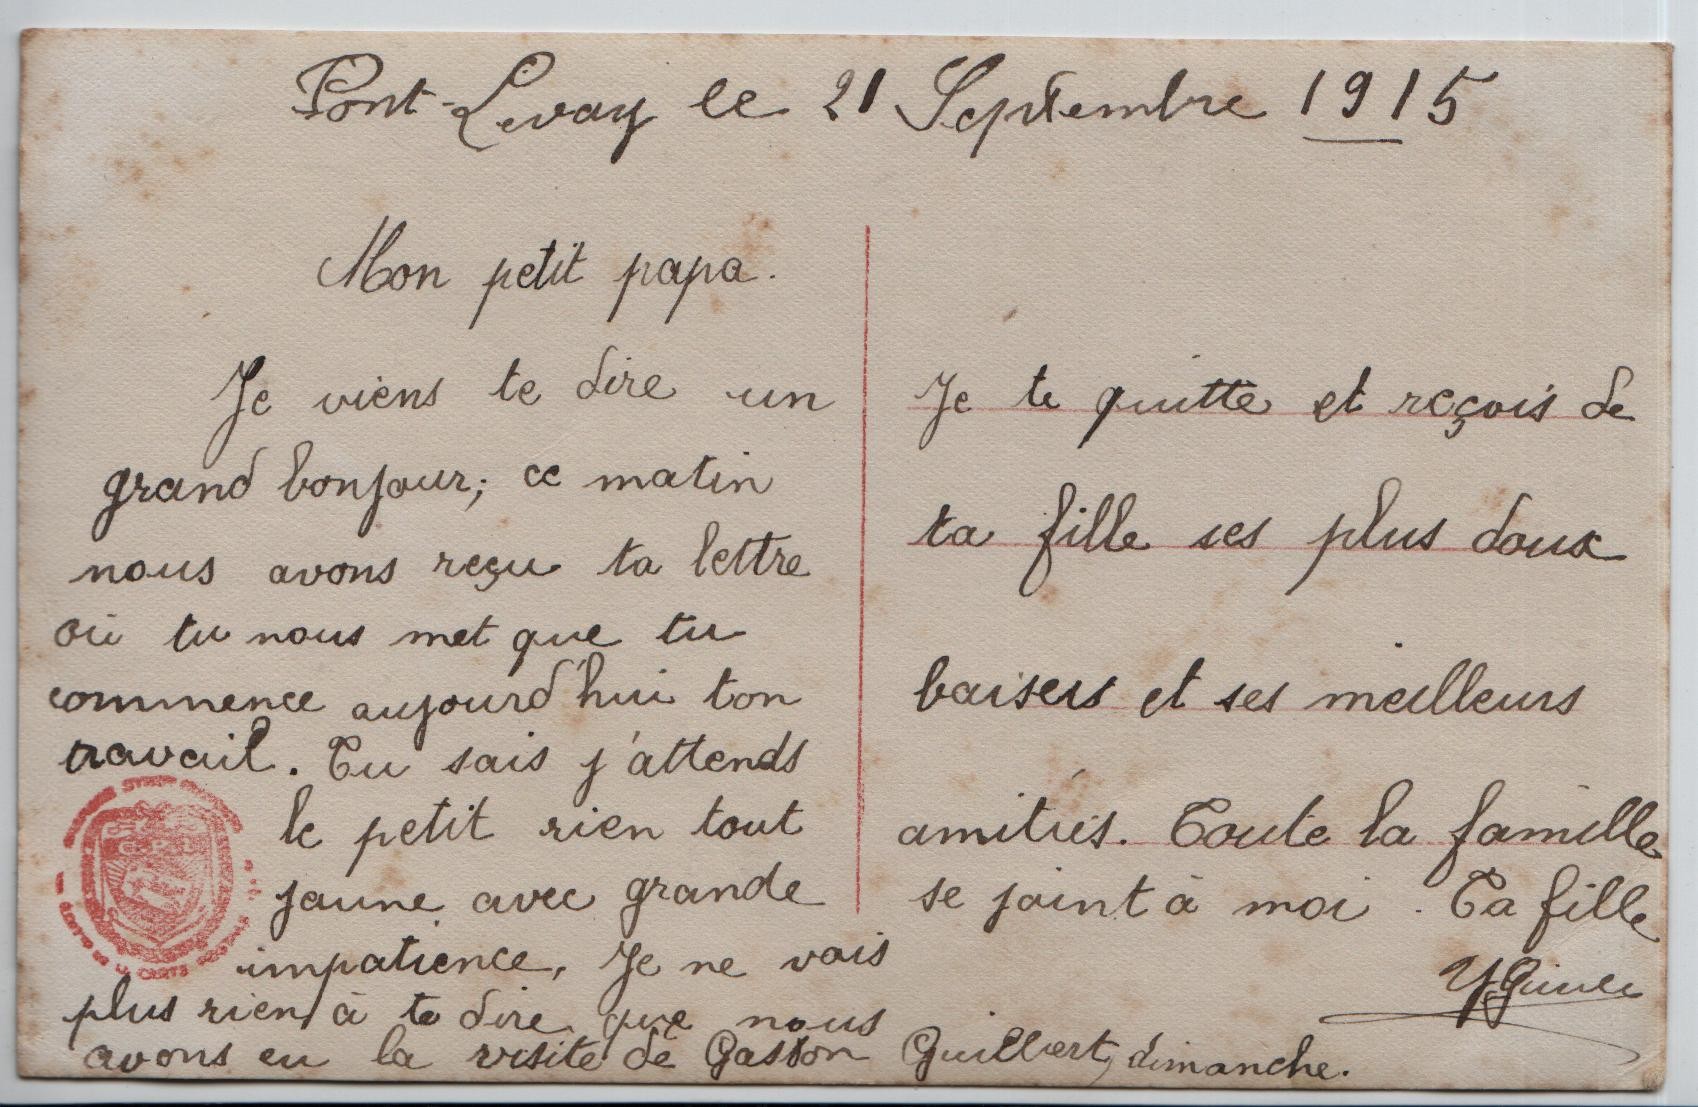 Pont-Levoy le 21 Septembre 1915
Mon petit papa.
Je viens te dire un
grand bonjour; ce matin
nous avons reçu ta lettre
où tu nous met que tu
commence aujourd'hui ton
travail. Tu sais j'attends
le petit rien tout
jaune avec grande
impatience, Je ne vois
plus rien à te dire que nous
avons eu la visite de Gaston Guillbert, dimanche.
Je te quitte et reçois de
ta fille ses plus doux
baisers et ses meilleurs
amitiés. Toute la famille
se joint à moi. Ta fille
LA CARTE